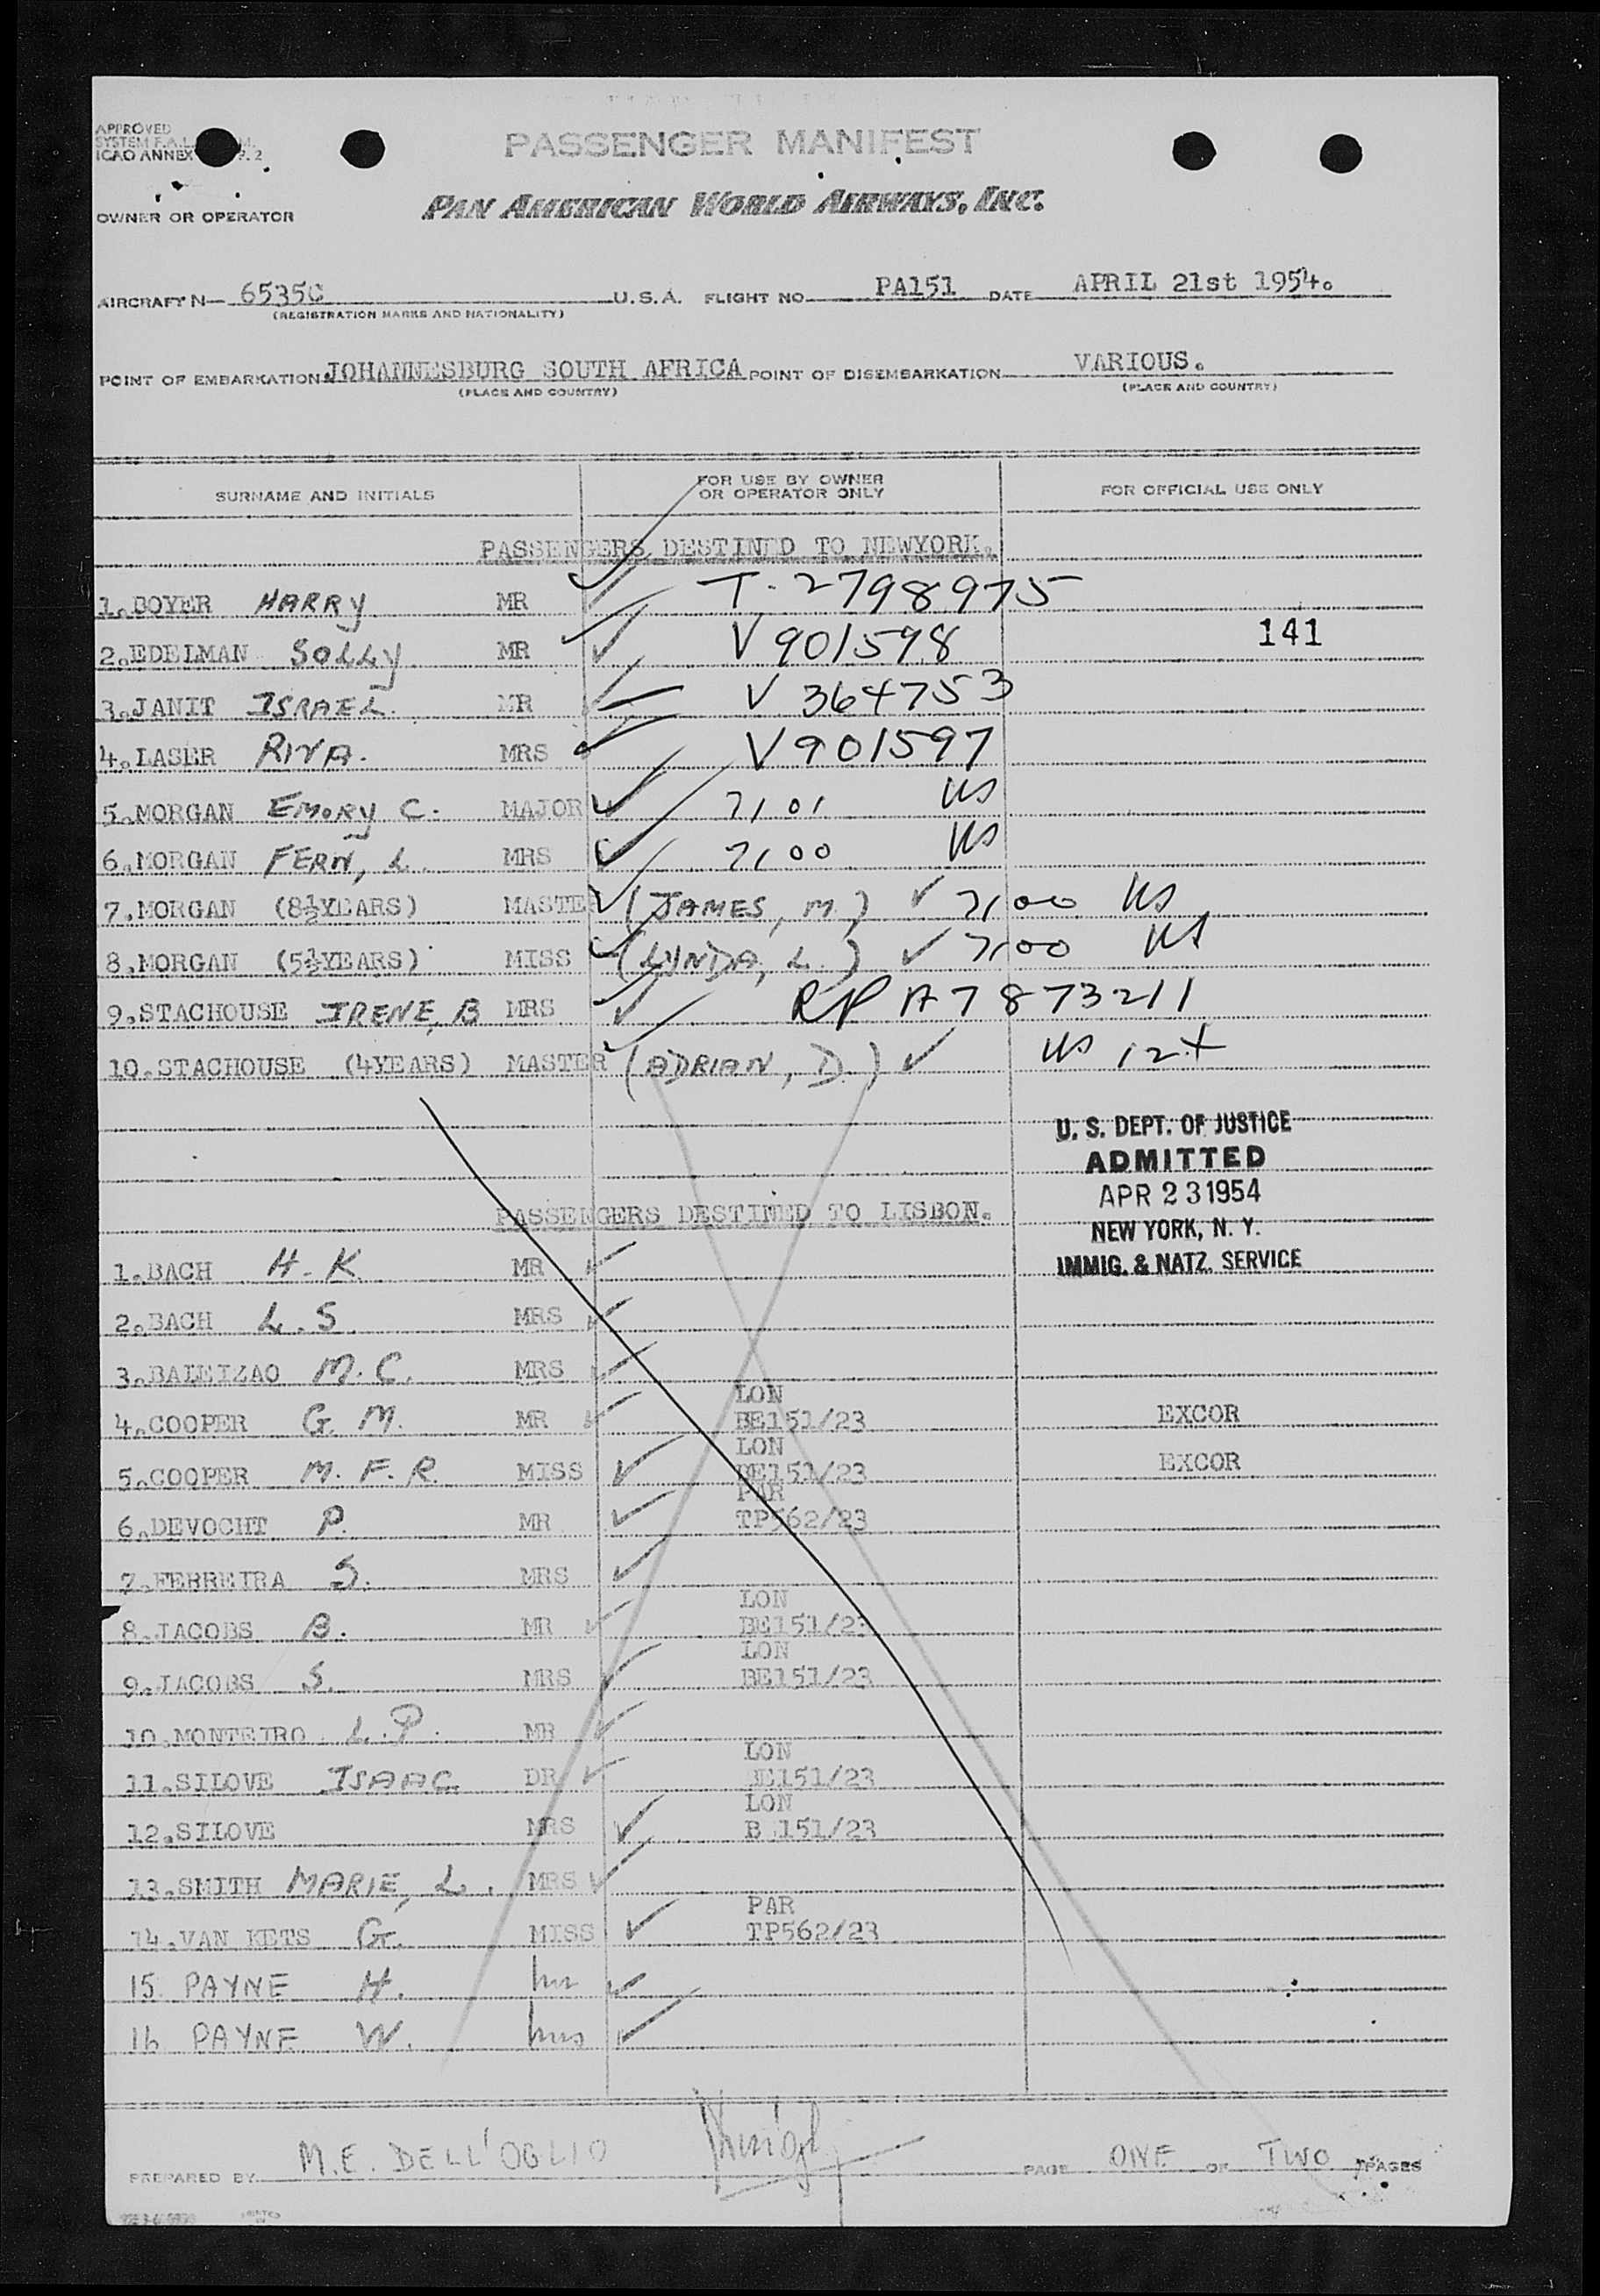 APPROVED
SYSTEM F.A.L. M.
ICAO ANNEX P. 2
PASSENGER MANIFEST
OWNER OR OPERATOR PAN AMERICAN WORLD AIRWAYS, INC.
AIRCRAFT N— 6535C U.S.A. FLIGHT NO. PA151 DATE APRIL 21st 1954.
(REGISTRATION MARKS AND NATIONALITY)
POINT OF EMBARKATION JOHANNESBURG SOUTH AFRICA POINT OF DISEMBARKATION VARIOUS.
(PLACE AND COUNTRY) (PLACE AND COUNTRY)
SURNAME AND INITIALS FOR USE BY OWNER OR OPERATOR ONLY FOR OFFICIAL USE ONLY
PASSENGERS DESTINED TO NEWYORK.
1.BOYER HARRY MR T-2798975
2.EDELMAN SOLLY MR V901598 141
3.JANIT ISRAEL. MR V 364753
4.LASER RIVA. MRS V901597
5.MORGAN EMORY C. MAJOR 7101 US
6.MORGAN FERN, L. MRS 7100 US
7.MORGAN (8½YEARS) MASTER (JAMES, M.) 7100 US
8.MORGAN (5½YEARS) MISS (LYNDA, L.) 7100 US
9.STACHOUSE IRENE, B MRS RP A7873211
10.STACHOUSE (4YEARS) MASTER (ADRIAN, D.) US 12+
U. S. DEPT. OF JUSTICE
ADMITTED
APR 23 1954
NEW YORK, N. Y.
IMMIG. & NATZ. SERVICE
PASSENGERS DESTINED TO LISBON.
1.BACH H. K. MR
2.BACH L. S. MRS
3.BALEIZAO M. C. MRS
LON
4.COOPER G. M. MR BE151/23 EXCOR
LON
5.COOPER M. F. R. MISS BE151/23 EXCOR
PAR
6.DEVOCHT P. MR TP562/23
7.FERREIRA S. MRS
LON
8.JACOBS B. MR BE151/23
LON
9.JACOBS S. MRS BE151/23
10.MONTEIRO L. P. MR
LON
11.SILOVE ISAAC DR BE151/23
LON
12.SILOVE MRS B 151/23
13.SMITH MARIE, L. MRS
PAR
14.VAN KETS G. MISS TP562/23
15. PAYNE H. mr
16 PAYNE W. mrs
PREPARED BY M.E. DELL'OGLIO PAGE ONE OF TWO PAGES